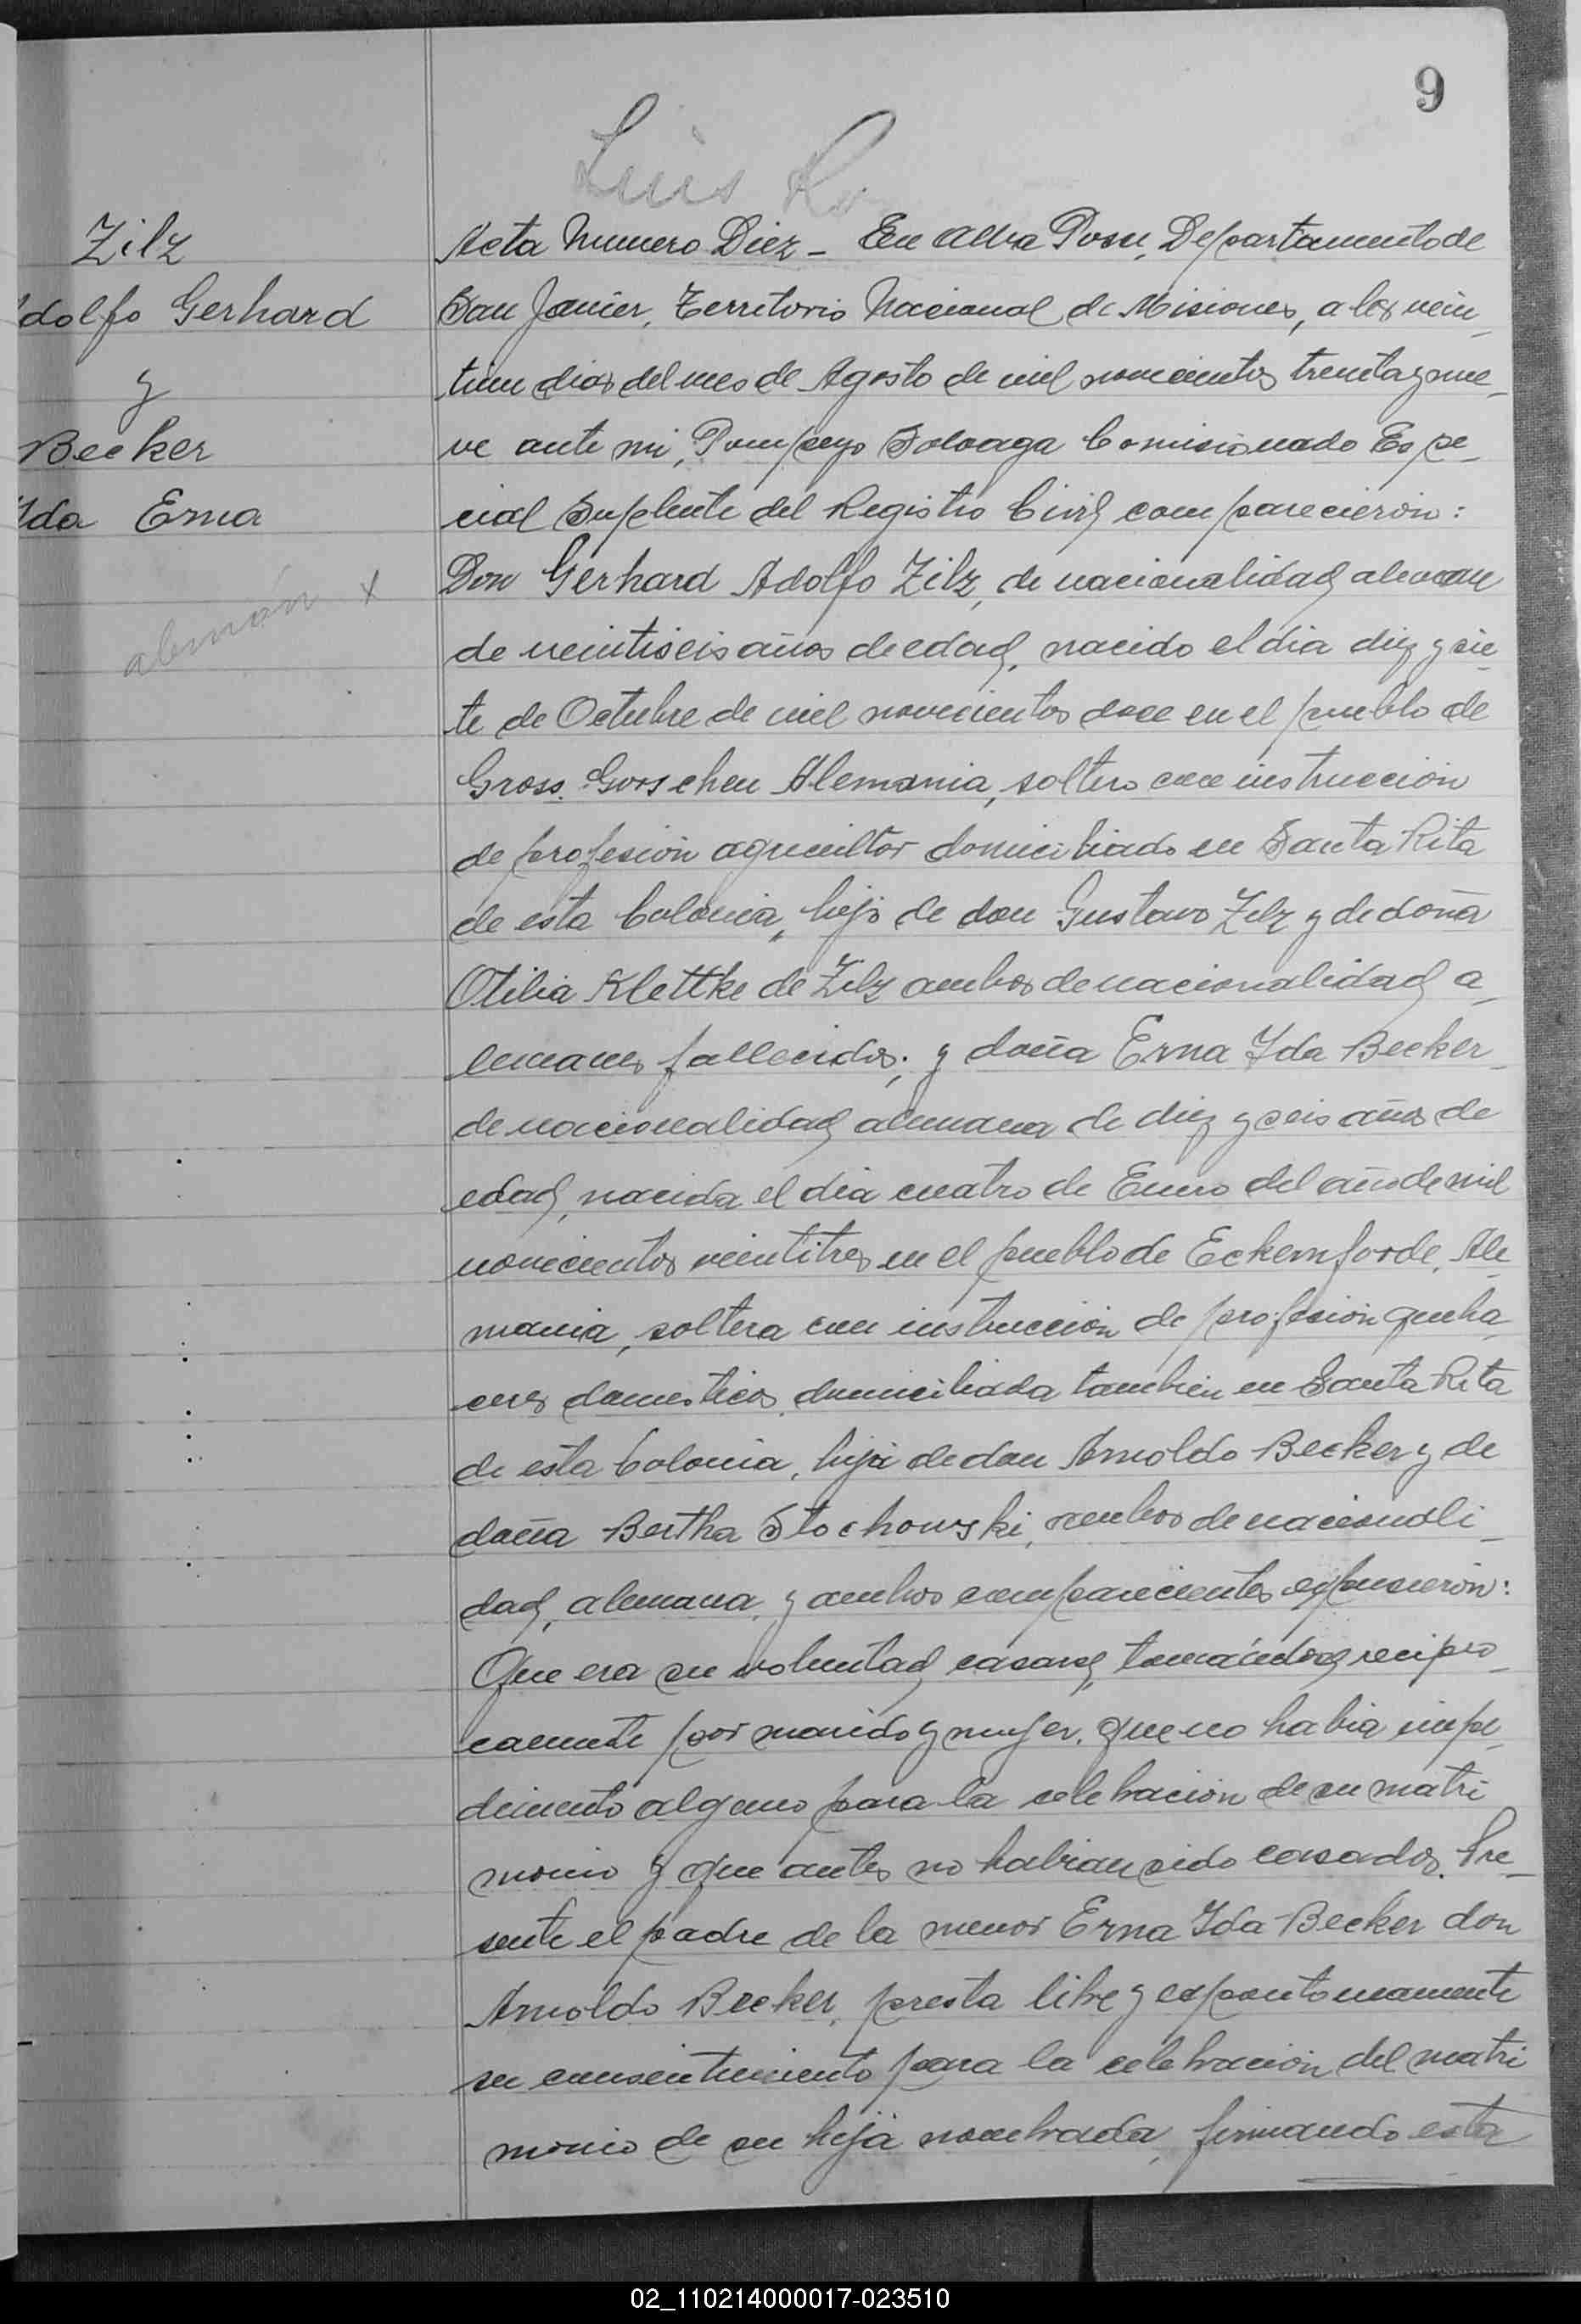 9
Luis
Zilz
dolfo Gerhard
y
Becker
Ida Erna
alemán x
Acta Numero Diez - En Alba Posse, Departamento de
San Javier, Territorio Nacional de Misiones, a los vein_
tiun dias del mes de Agosto de mil novecientos treinta y nue_
ve ante mi, Pompeyo Soloaga Comisionado Espe_
cial Suplente del Registro Civil comparecierón:
Don Gerhard Adolfo Zilz, de nacionalidad aleman
de veintiseis años de edad, nacido el dia diez y sie_
te de Octubre de mil novecientos doce en el pueblo de
Gross. Gorschen Alemania, soltero con instrucción
de profesión agricultor domiciliado en Santa Rita
de esta Colonia, hijo de don Gustavo Zilz y de doña
Otilia Klettke de Zilz ambos de nacionalidad a_
lemanes fallecidos; y doña Erna Ida Becker_
de nacionalidad alemana de diez y seis años de
edad, nacida el dia cuatro de Enero del año de mil
novecientos veintitres en el pueblo de Eckernforde, Ale_
mania, soltera con instrucción de profesión queha_
ceres domesticos, domiciliada tambien en Santa Rita
de esta Colonia, hija de don Arnoldo Becker y de
doña Bertha Stochowski, ambos de nacionali_
dad, alemana, y ambos comparecientes expusierón:
Que era su voluntad casarse, tomándose recipro_
camente por marido y mujer, que no habia impe_
dimento alguno para la celebración de su matri
monio y que antes no habian sido casados. Pre_
sente el padre de la menor Erna Ida Becker don
Arnoldo Becker, presta libre y expontaneamente
su consentimiento para la celebración del matri
monio de su hija nombrada, firmando esta
02_110214000017-023510